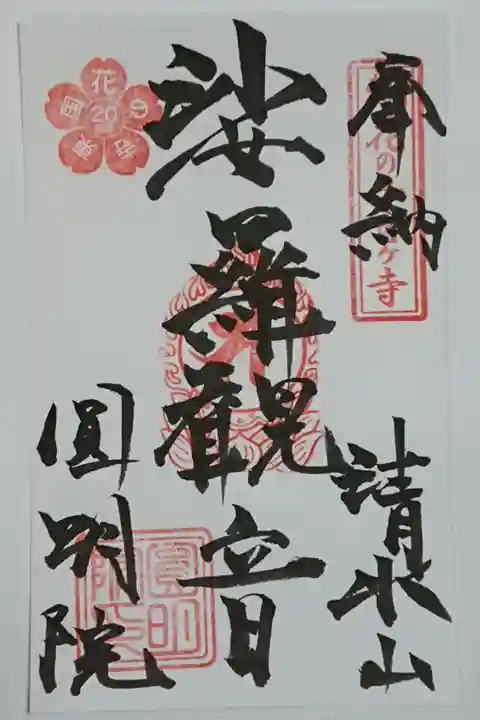 奉納
清水山
娑羅観音
圓明院
花の寺
花の
東国
20
圓明院之印